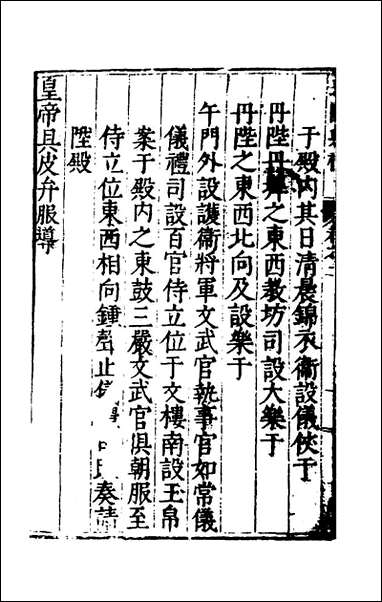 于殿內其日清晨錦衣衛設儀仗于
丹陛丹墀之東西教坊司設大樂于
丹陛之東西北向及設樂于
午門外設護衛將軍文武官執事官如常儀
儀禮司設百官侍立位于文樓南設玉帛
案于殿內之東鼓三嚴文武官俱朝服至
侍立位東西相向鍾聲止儀 奏請
陞殿
皇帝具皮弁服導